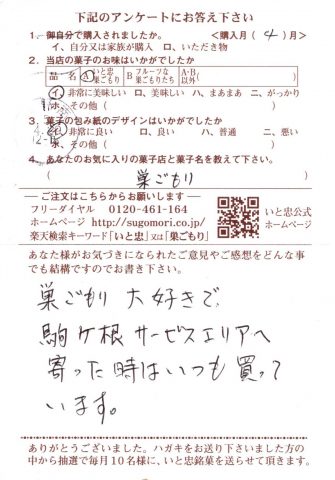 下記のアンケートにお答え下さい
1. 御自分で購入されましたか。 <購入月( 4 )月>
イ、自分又は家族が購入 ロ、いただき物
2. 当店の菓子のお味はいかがでしたか
品名 A いと忠巣ごもり B フルーツな巣ごもりたち A・B以外( )
イ、非常に美味しい ロ、美味しい ハ、まあまあ ニ、がっかり
ホ、その他( )
3. 菓子の包み紙のデザインはいかがでしたか
イ、非常に良い ロ、良い ハ、普通 ニ、悪い
ホ、その他( )
4. あなたのお気に入りの菓子店と菓子名を教えて下さい。
巣ごもり
―ご注文はこちらからお願いします―
フリーダイヤル 0120-461-164
ホームページ http://sugomori.co.jp/
楽天検索キーワード「いと忠」又は「巣ごもり」
いと忠公式
ホームページ
あなた様がお気づきになられたご意見やご感想をどんな事
でも結構ですのでお書き下さい。
巣ごもり 大好きで、
駒ケ根サービスエリアへ
寄った時はいつも買って
います。
ありがとうございました。ハガキをお送り下さいました方の
中から抽選で毎月10名様に、いと忠銘菓を送らせて頂きます。